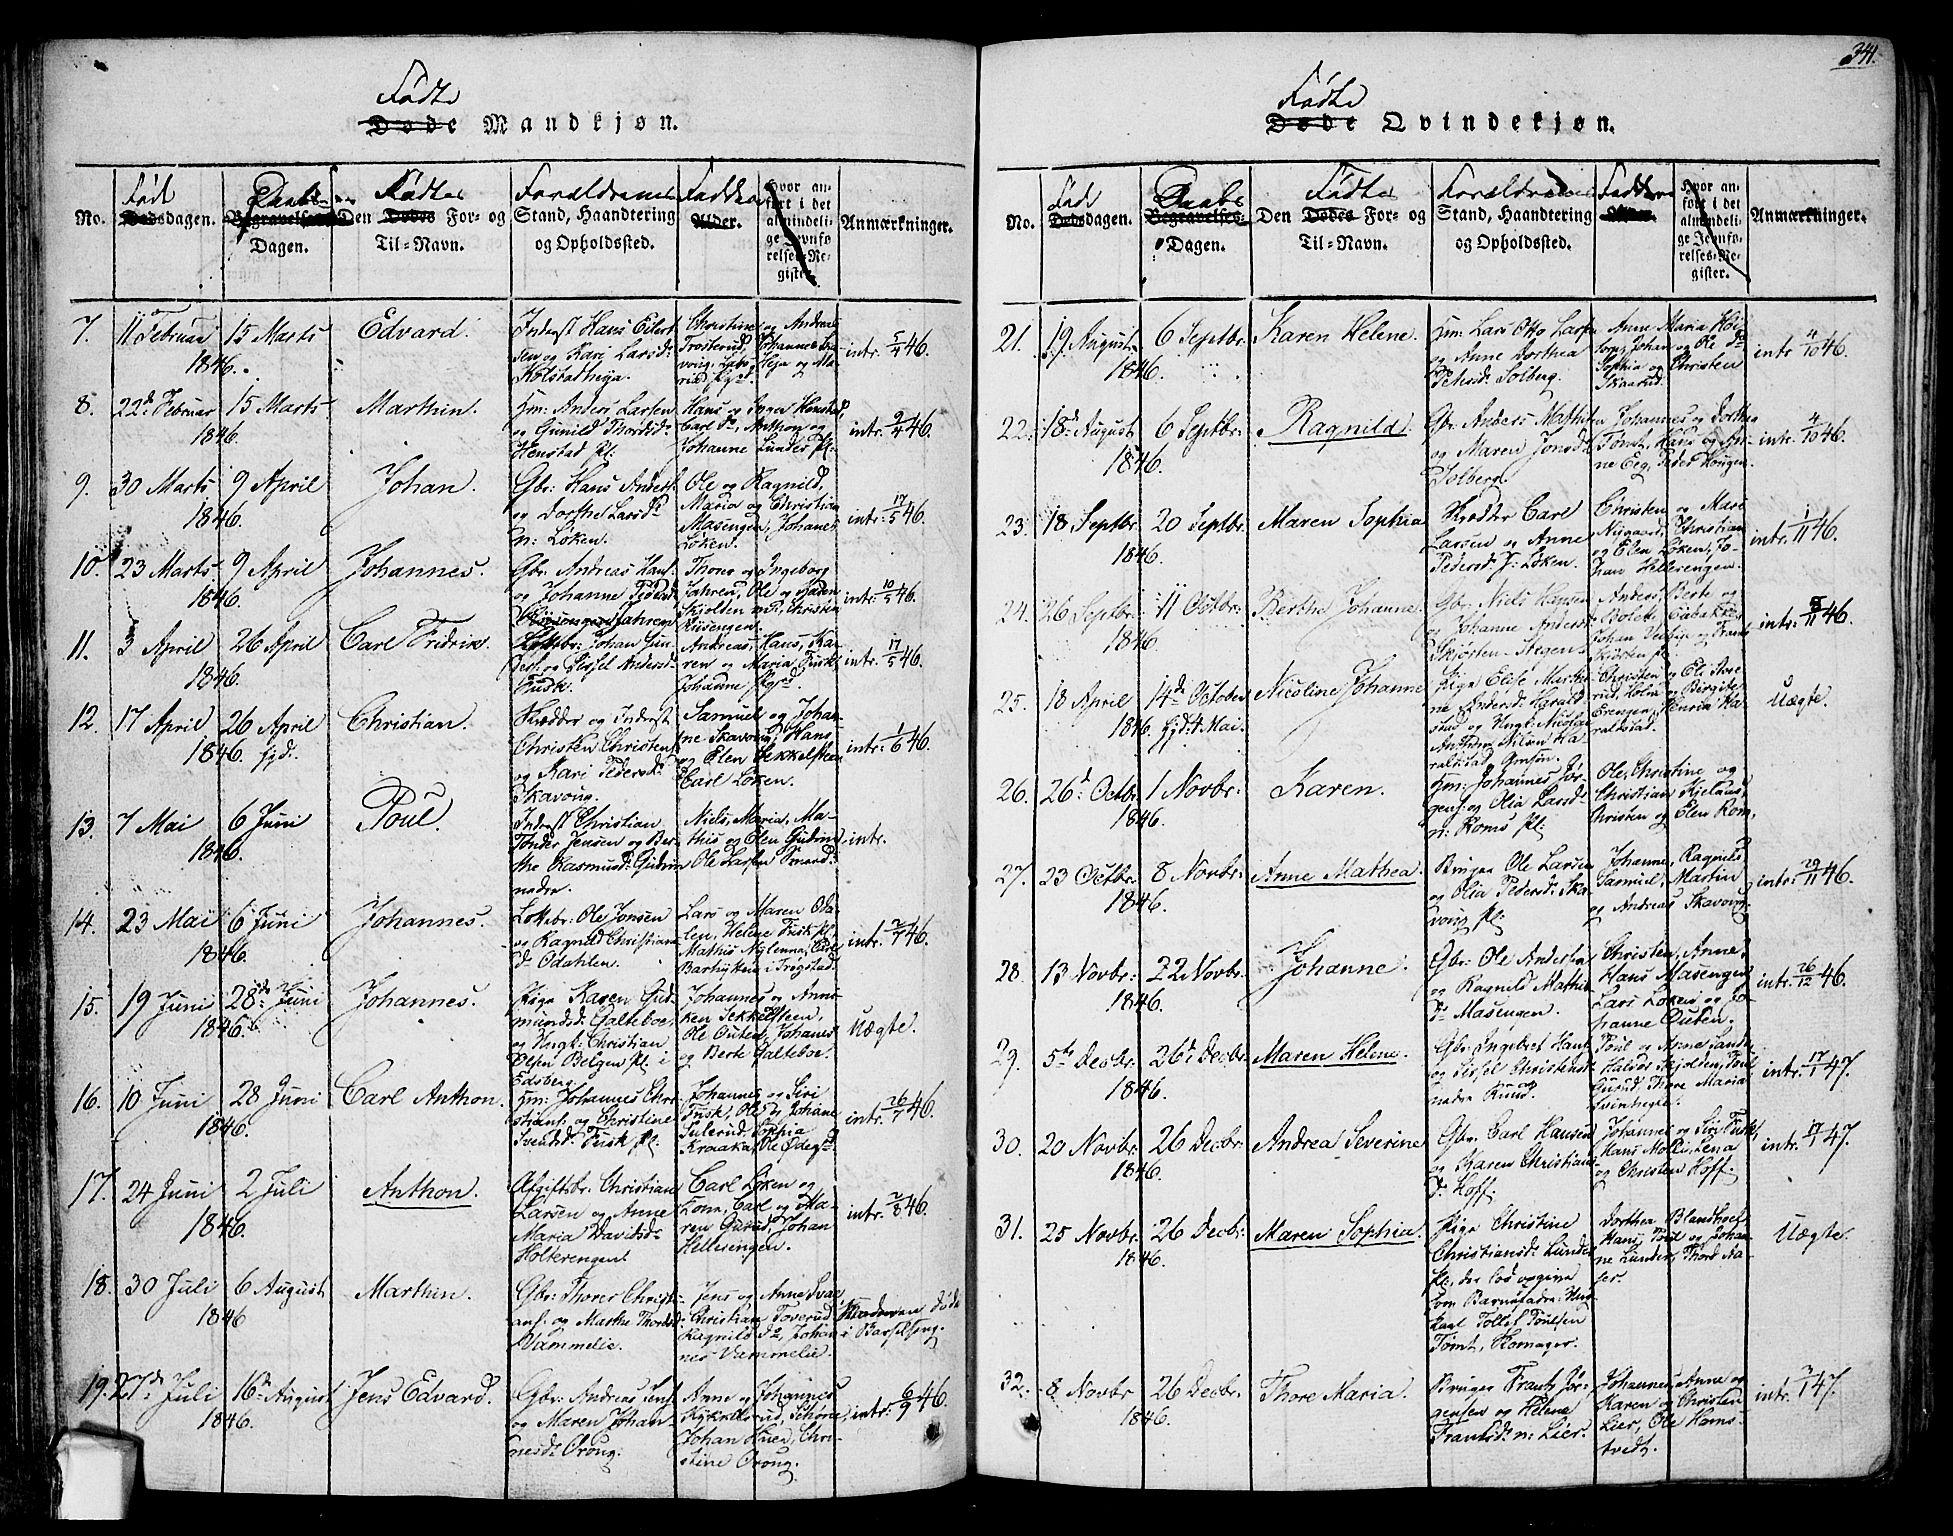 341.
Fødte
Døde Mandkjøn.
No.
Død
Dødsdagen.
Daabs
Begravelses-
Dagen.
Fødtes
Den Dødes For- og
Til-Navn.
Forældrenes
Stand, Haandtering
og Opholdssted.
Faddere
Alder.
Hvor an-
ført i det
almindeli-
ge Jevnfø-
relses-Re-
gister.
Anmærkninger.
7.
11 Februar
1846.
15 Marts
Edvard.
Inderst Hans Eilert
sen og Kari Larsd.
Kolstadheja.
Christine og Andrea
Trosterud, Johannes
intr. 5/4 46.
8.
22d Februar
1846.
15 Marts
Marthin.
Hm: Anders Larsen
og Gunild Thordsd.
Henstad pl:
Hans og Inger Henstad,
Carl do, Anthon og
Johanne Lunder pl:
intr. 9/4 46.
9.
30 Marts
1846.
9 April
Johan.
Gbr: Hans Anders.
og Dorthe Larsd.
n: Løken.
Ole og Ragnild,
Maria og Christian
Masengen, Johanes
Løken.
intr. 17/5 46.
10.
23 Marts
1846.
9 April
Johannes.
Gbr. Andreas Hans.
og Johanne Pedersd.
Jahren
Thore og Ingeborg
Jahren, Ole og Karen
Skjolden
intr. 10/5 46.
11.
3 April
1846.
26 April
Carl Fridrik.
Johan
og Sissel Andersd.
Tusk.
Andreas, Hans, Ka-
ren og Maria Tusk,
Johanne
intr. 17/5 46.
12.
17 April
1846.
26 April
hjd:
Christian.
Skrædder og Inderst
Christen Christens.
og Kari Pedersd.
Skavoug.
Samuel og Johan-
ne Skavoug, Hans
og Elen Sekkelsteen
Carl Løken.
intr: 1/6 46.
13.
7 Mai
1846.
6 Juni
Poul.
Inderst Christian
Tønder Jensen og Ber-
the Rasmusd: Gudim
nedre.
Niels, Maria, Ma-
this og Elen Gudim
Ole Larsen Smaad.
intr.
14.
23 Mai
1846.
6 Juni
Johannes.
Ole Jonsen
og Ragnild Christians
d. Odahlen.
Lars og Maren Oda-
len, Helene Tusk pl.
Mathis Nylenna, Carl
i Trøgstad.
intr. 2/7 46.
15.
19 Juni
1846.
28de Juni
Johannes.
Pige Karen Gud-
mundsd: Galteboe,
og Ungk: Christian
Olsen Belgen pl. i
Edsberg.
Johannes og Anne-
ken Sekkelsteen,
Ole Outen, Johanes
og Berte Galteboe.
Uægte.
16.
10 Juni
1846.
28 Juni
Carl Anthon.
Hm: Johannes Chri-
stians. og Christine
Svensd. Tusk pl.
Johannes og Siri
Tusk, Ole og Johane
Sulerud, Sophia
Kraaka, Ole Ødeg.
intr. 26/7 46.
17.
24 Juni
1846.
2 Juli
Anthon.
Afgiftsbr. Christian
Larsen og Anne
Maria Davidsd.
Holterengen.
Carl Løken og
Kona, Carl og Ma-
ren Gurud, Johan
Hellesengen.
intr. 2/8 46.
18.
30 Juli
1846
6 August
Marthin.
Gbr: Thorer Christi-
ans. og Marthe Thordsd.
Vammelie.
Jens og Anne
Christian Toverud,
Ragnild do, Johan-
nes Vammelie.
Moderen døde
i Barselseng.
19.
27de Juli
1846.
16de August
Jens Edvard.
Gbr. Andreas Jens.
og Maren Johan-
nesd. Ørong.
Anne og Johannes
Kykkelsrud,
Johan Chri-
stine Ørong.
intr: 6/9 46.
Fødte
Døde Qvindekjøn.
No.
Død
Dødsdagen.
Daabs
Begravelses-
Dagen.
Fødtes
Den Dødes For- og
Til-Navn.
Forældrenes
Stand, Haandtering
og Opholdssted.
Faddere
Alder.
Hvor an-
ført i det
almindeli-
ge Jevnfø-
relses-Re-
gister.
Anmærkninger.
21.
19 August
1846.
6 Septbr.
Karen Helene.
Hm: Lars Otto Lars.
og Anne Dorthea
Petersd. Solberg.
Anne Maria
Johan og Ole do
Sophia og Christen
Skaarud.
intr 4/10 46.
22.
18de August
1846.
6 Septbr:
Ragnild.
Gbr. Anders Mathis.
og Maren Jonsd.
Solberg.
Johannes og Dorthea
Tømt, Hans og An-
ne Eeg, Peder Hougen.
intr. 4/10 46.
23.
18 Septbr.
1846.
20 Septbr.
Maren Sophia
Skrædder Carl
Larsen og Anne
Pedersd. Løken.
Christen og Mari
Nisgaard, Christian
og Elen Løken, Jo-
han Hellesengen.
intr. 1/11 46.
24.
26 Septbr.
1846.
11 Octbr.
Berthe Johanne.
Gbr. Niels Hansen
og Johanne Andersd.
Skjøsten-Stegen
Anders, Berte og
Bolete
Johan
Skjøsten pl.
intr: 8/11 46.
25.
18 April
1846.
14de October
hjd: 4 Mai.
Nicoline Johanne
Pige Elise Marthi-
ne Andersd. Harald-
stad og Ungk: Nicolai
Anthon Nilsen Ha-
raldstad,
Christen og Eli
rud, Helia og Birgite
Erengen, Henrik Ha-
raldstad.
Uægte.
26.
26de Octbr.
1846.
1 Novbr:
Karen.
Hm: Johannes Jør-
gens: og Olia Larsd.
n: Roms pl:
Ole, Christine og
Christian Kjelaas,
Christen og Elen Rom.
27.
23 Octbr.
1846.
8 Novbr.
Anne Mathea.
Bruger Ole Larsen
og Olia Pedersd. Ska-
voug pl.
Johanne, Ragnild
Samuel, Martin
og Andreas Skavoug.
intr. 29/11 46.
28.
13 Novbr:
1846.
22 Novbr.
Johanne.
Gbr. Ole Andersen
og Ragnild Mathis-
d. Masengen.
Christen, Anne,
Hans Masengen,
Lars Løken og Jo-
hanne Outen.
intr. 26/12 46.
29.
5te Decbr.
1846.
26de Decbr.
Maren Helene.
Gbr. Ingebret Hans.
og Sissel Christensd.
nedre Ruud.
Poul og Anne
Halvor Skjolden, Poul
Gurud, Thore Maria
Svinhegle.
intr. 17/1 47.
30.
20 Novbr.
1846.
26 Decbr.
Andrea Severine
Gbr. Carl Hansen
og Karen Christians
d. Hoff.
Johannes og Siri Tusk,
Hans Lena
og Christen Hoff.
intr. 17/1 47.
31.
25 Novbr.
1846.
26 Decbr.
Maren Sophia.
Pige Christine
Christiansd. Lunder
pl., der lod opgive
som Barnefader: Ung-
karl Tollef Poulsen
Tømt, Homager.
Dorthea
Hans, Poul og Johan-
ne Lunder, Thord Aa-
ser.
Uægte.
32.
8 Novbr
1846.
26 Decbr.
Thore Maria.
Bruger Frants Jør-
gensen og Helene
Frantsd. n: Lier.
Johannes, Anne og
Karen og Christen
Lier, Ole Hams-
tvedt.
intr. 7/1 47.